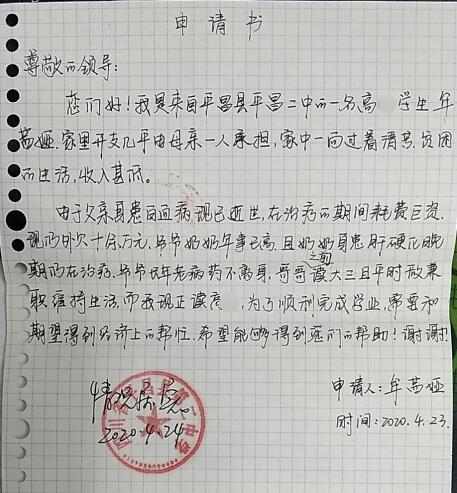 申请书
尊敬的领导:
您们好!我是来自平昌县平昌二中的一名高 学生年
茜娅.家里开支几乎由母亲一人承担,家中一向过着清苦.贫困
的生活,收入甚微。
由于父亲身患白血病现已逝世,在治疗的期间耗费巨资.
现仍外欠十余万元.爷爷奶奶年事已高,且奶奶身患肝硬化晚
期仍在治疗.爷爷长年老病药不离身,哥哥之前读大三且平时做兼
职维持生活,而我现正读高 ,为了顺利完成学业,需要和
期望得到经济上的帮忙.希望能够得到您们的帮助!谢谢!
情况属实.
2020.4.24
申请人:年茜娅
时间:2020.4.23.